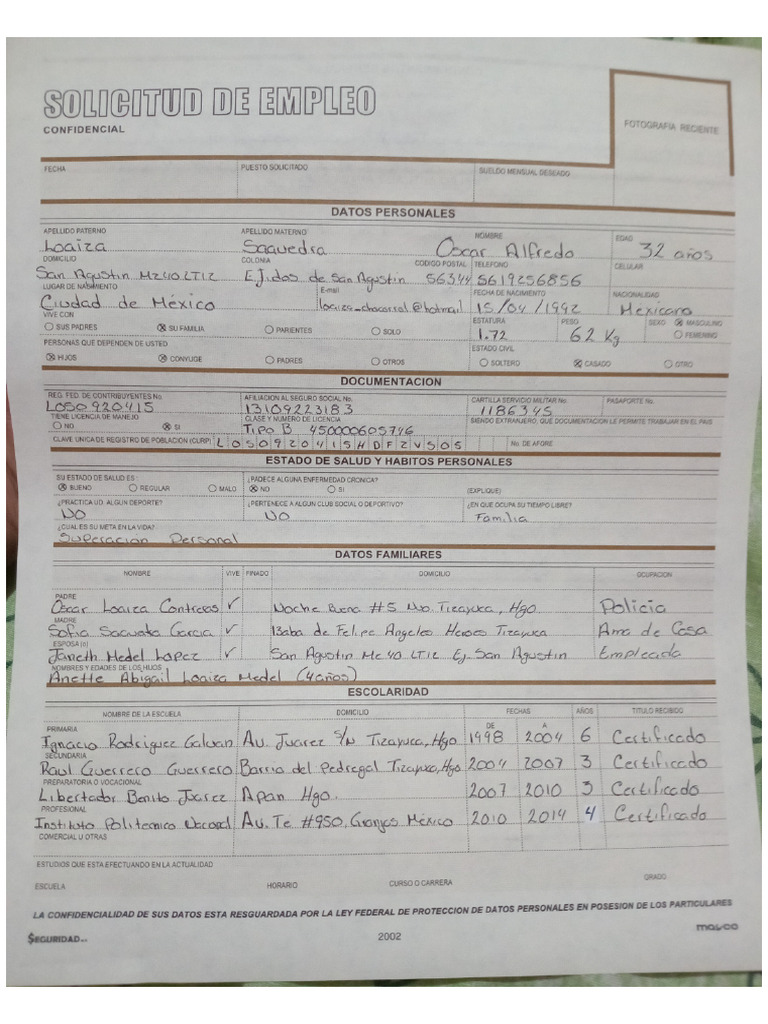 SOLICITUD DE EMPLEO
CONFIDENCIAL
FOTOGRAFIA RECIENTE
FECHA PUESTO SOLICITADO SUELDO MENSUAL DESEADO
DATOS PERSONALES
APELLIDO PATERNO APELLIDO MATERNO NOMBRE EDAD
Loaiza Saavedra Oscar Alfredo 32 años
DOMICILIO COLONIA CODIGO POSTAL TELEFONO CELULAR
San Agustin Mz40 LT12 Ejidos de San Agustin 56344 5619256856
LUGAR DE NACIMIENTO E-mail FECHA DE NACIMIENTO NACIONALIDAD
Ciudad de México loaiza_chocorrol@hotmail 15/04/1992 Mexicano
VIVE CON ESTATURA PESO SEXO MASCULINO
SUS PADRES SU FAMILIA PARIENTES SOLO 1.72 62 Kg FEMENINO
PERSONAS QUE DEPENDEN DE USTED ESTADO CIVIL
HIJOS CONYUGE PADRES OTROS SOLTERO CASADO OTRO
DOCUMENTACION
REG. FED. DE CONTRIBUYENTES No. AFILIACION AL SEGURO SOCIAL No. CARTILLA SERVICIO MILITAR No. PASAPORTE No.
LOSO920415 13109223183 1186345
TIENE LICENCIA DE MANEJO CLASE Y NUMERO DE LICENCIA SIENDO EXTRANJERO, QUE DOCUMENTACION LE PERMITE TRABAJAR EN EL PAIS
NO SI Tipo B 450000605746
CLAVE UNICA DE REGISTRO DE POBLACION (CURP) LOSO920415HDFZVS05 No. DE AFORE
ESTADO DE SALUD Y HABITOS PERSONALES
SU ESTADO DE SALUD ES : ¿PADECE ALGUNA ENFERMEDAD CRONICA?
BUENO REGULAR MALO NO SI (EXPLIQUE)
¿PRACTICA UD. ALGUN DEPORTE? ¿PERTENECE A ALGUN CLUB SOCIAL O DEPORTIVO? ¿EN QUE OCUPA SU TIEMPO LIBRE?
NO NO Familia
¿CUAL ES SU META EN LA VIDA?
Superación Personal
DATOS FAMILIARES
NOMBRE VIVE FINADO DOMICILIO OCUPACION
PADRE
Oscar Loaiza Contreras ✓ Noche Buena #5 Nvo. Tizayuca, Hgo Policia
MADRE
Sofia Garcia ✓ de Felipe Angeles Heroes Tizayuca Ama de Casa
ESPOSA (o)
Janeth Medel Lopez ✓ San Agustin Mc 40 LT12 Ej. San Agustin Empleada
NOMBRES Y EDADES DE LOS HIJOS
Anette Abigail Loaiza Medel (4 años)
ESCOLARIDAD
NOMBRE DE LA ESCUELA DOMICILIO FECHAS AÑOS TITULO RECIBIDO
DE A
PRIMARIA
Ignacio Rodriguez Galvan Av. Juarez S/N Tizayuca, Hgo 1998 2004 6 Certificado
SECUNDARIA
Raul Guerrero Guerrero Barrio del Pedregal Tizayuca, Hgo 2004 2007 3 Certificado
PREPARATORIA O VOCACIONAL
Libertador Benito Juarez Apan Hgo. 2007 2010 3 Certificado
PROFESIONAL
Instituto Politecnico Nacional Av. Te #950, Granjas México 2010 2014 4 Certificado
COMERCIAL U OTRAS
ESTUDIOS QUE ESTA EFECTUANDO EN LA ACTUALIDAD
ESCUELA HORARIO CURSO O CARRERA GRADO
LA CONFIDENCIALIDAD DE SUS DATOS ESTA RESGUARDADA POR LA LEY FEDERAL DE PROTECCION DE DATOS PERSONALES EN POSESION DE LOS PARTICULARES
SEGURIDAD 2002